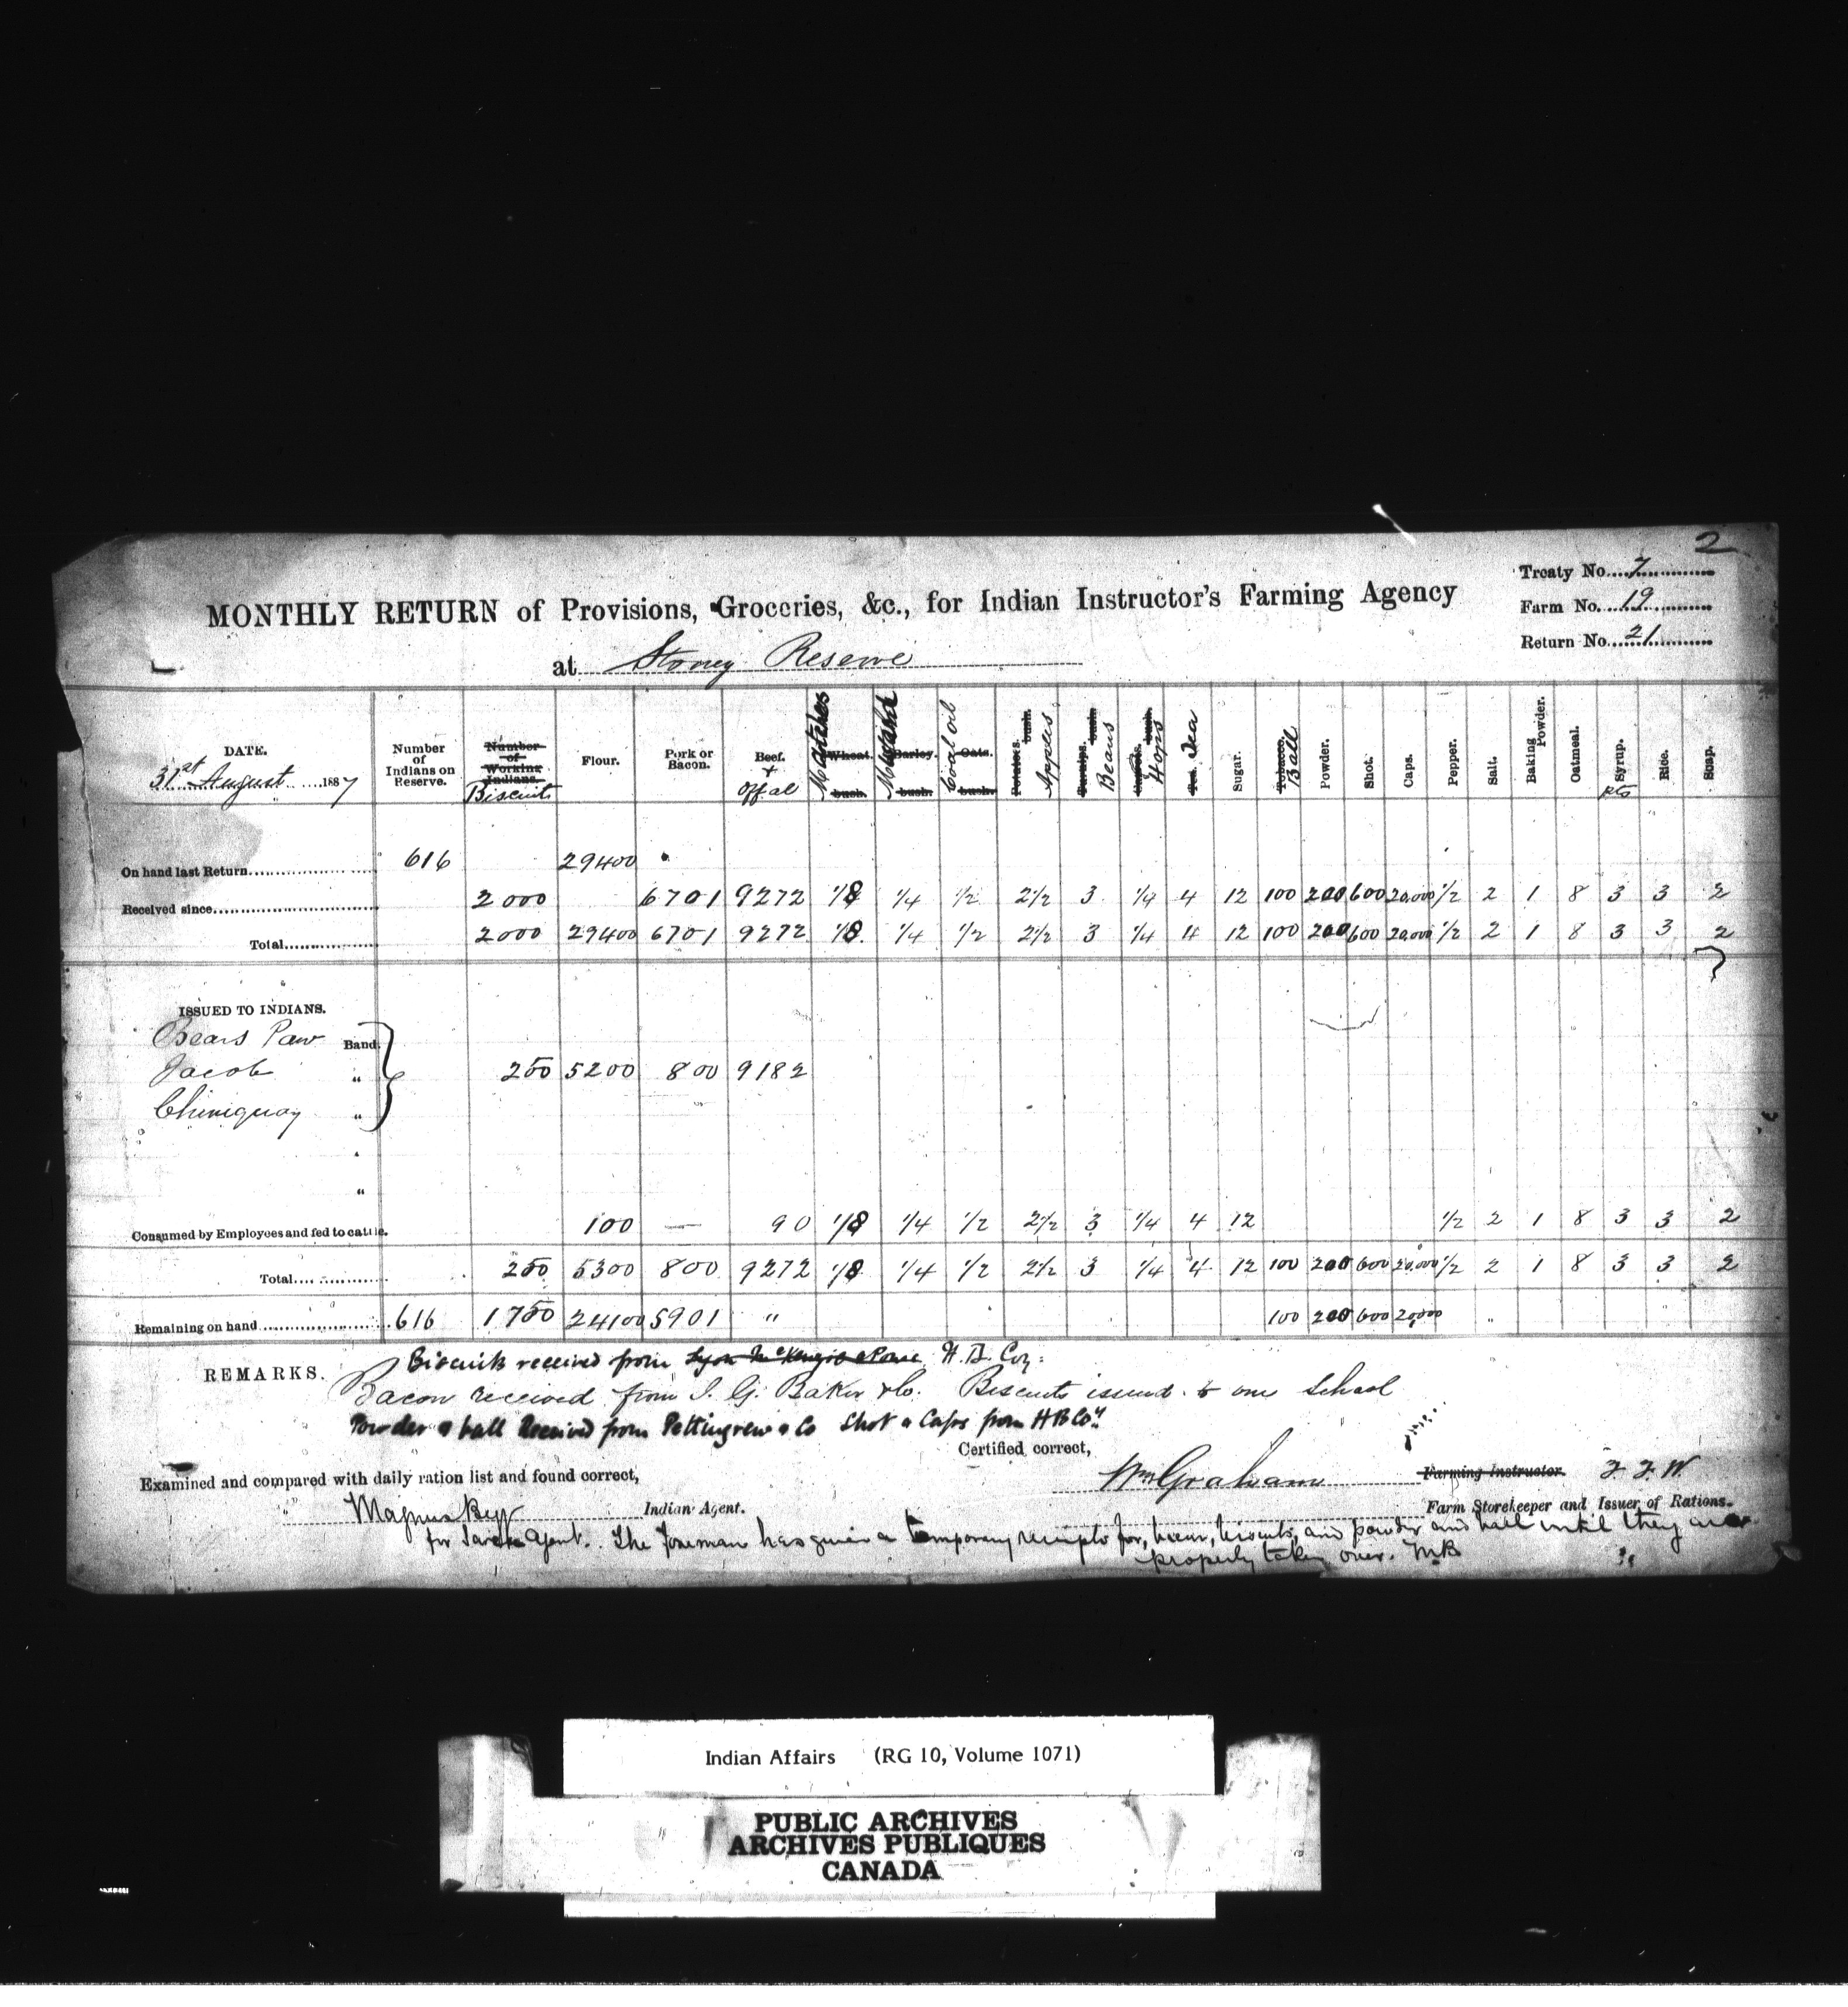 2
Treaty No. 7
MONTHLY RETURN of Provisions, Groceries, &c., for Indian Instructor's Farming Agency
Farm No. 19
Return No. 21
at Stoney Reserve
DATE. 31st August 1887
Number of Indians on Reserve.
Number of Working Indians. Biscuits
Flour.
Pork or Bacon.
Beef. + Offal
Wheat. bush. Matches
Barley. bush. Mustard
Oats. bush. Coal oil
Potatoes. bush. Apples
Turnips. bush. Beans
bush. Hops
Tea. Tea
Sugar.
Tobacco. Ball
Powder.
Shot.
Caps.
Pepper.
Salt.
Baking Powder.
Oatmeal.
Syrup. pts
Rice.
Soap.
On hand last Return 616 29400
Received since 2000 6701 9272 1/8 1/4 1/2 2 1/2 3 1/4 4 12 100 200 600 20,000 1/2 2 1 8 3 3 2
Total 2000 29400 6701 9272 1/8 1/4 1/2 2 1/2 3 1/4 4 12 100 200 600 20,000 1/2 2 1 8 3 3 2
ISSUED TO INDIANS.
Bears Paw Band
Jacob " 250 5200 800 9182
Chiniquay "
"
"
Consumed by Employees and fed to cattle. 100 — 90 1/8 1/4 1/2 2 1/2 3 1/4 4 12 1/2 2 1 8 3 3 2
Total 250 5300 800 9272 1/8 1/4 1/2 2 1/2 3 1/4 4 12 100 200 600 20,000 1/2 2 1 8 3 3 2
Remaining on hand 616 1750 24100 5901 " 100 200 600 20,000
REMARKS. Biscuits received from H. B. Coy:
Bacon received from I. G. Baker & Co. Biscuits issued to one School
Powder & ball Received from Pettingrew & Co Shot & Caps from H B Coy
Certified correct,
Wm Graham Farming Instructor
Examined and compared with daily ration list and found correct,
Magnus Begg Indian Agent.
Farm Storekeeper and Issuer of Rations.
for Agent. The foreman has given a temporary receipt for, biscuits, and powder and ball until they are
properly taken over. M.B
Indian Affairs (RG 10, Volume 1071)
PUBLIC ARCHIVES
ARCHIVES PUBLIQUES
CANADA